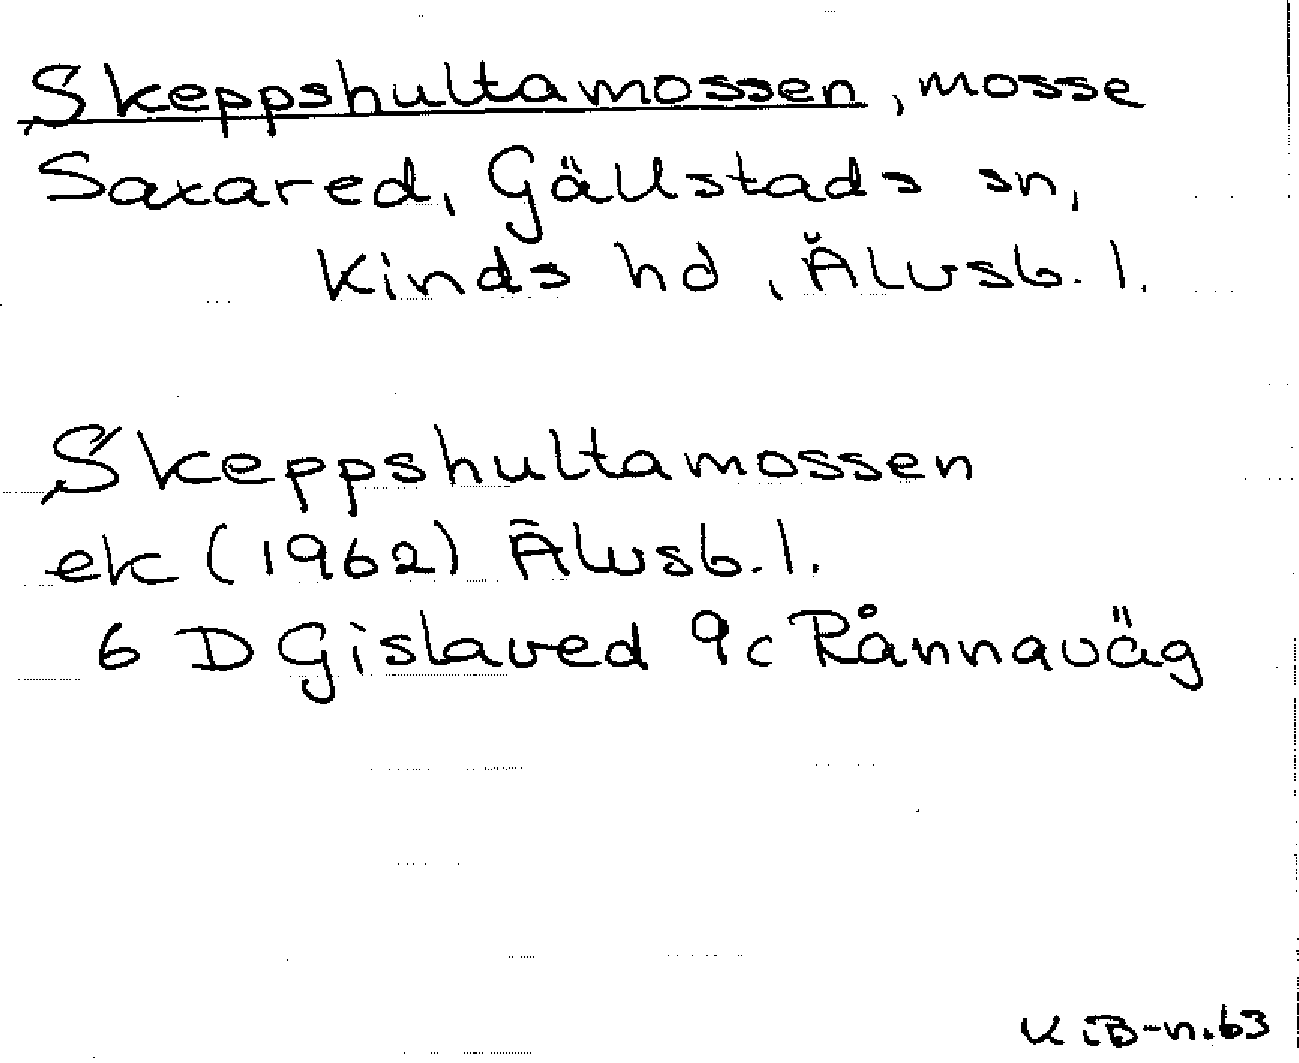 Skeppshultamossen, mosse
Saxared, Gällstads sn,
Kinds hd, Älvsb. l.
Skeppshultamossen
ek (1962) Älvsb. l.
6 D Gislaved 9c Rånnaväg
K iB-n.63